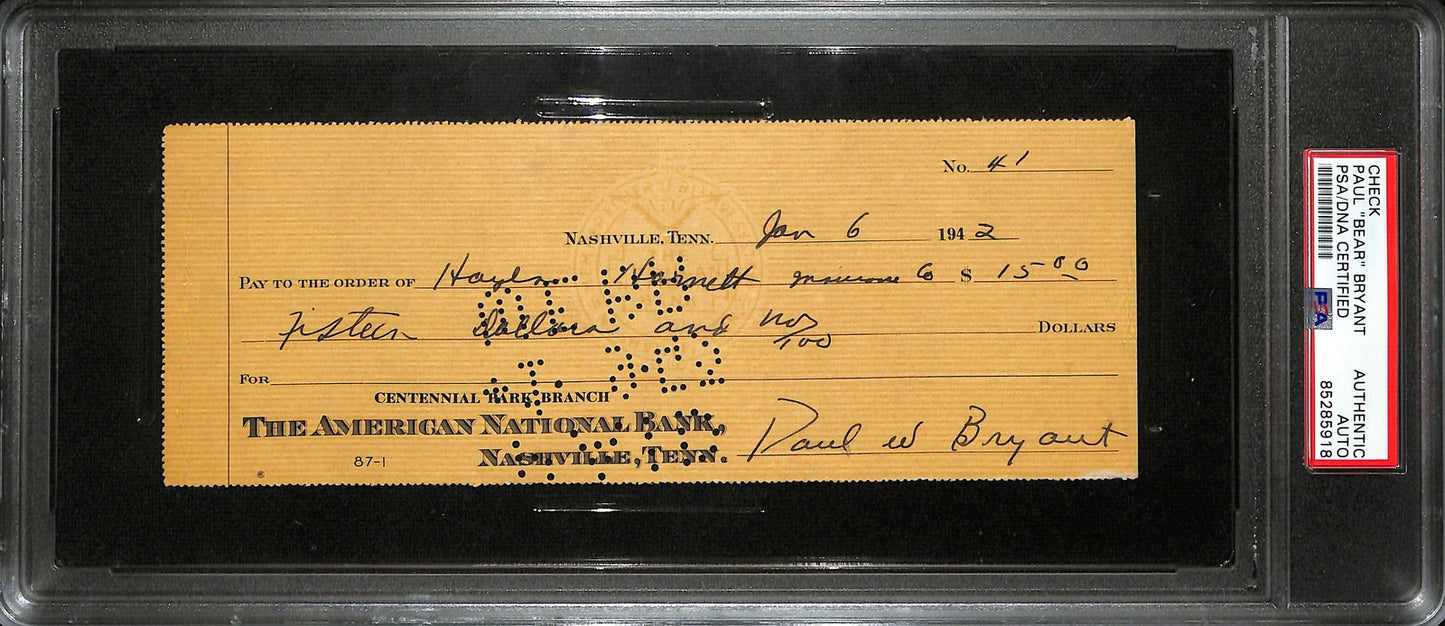 No. 41
Nashville, Tenn. Jan 6 1942
Pay to the order of Insurance Co $ 15 00
Fifteen dollars and no/100 Dollars
For
Centennial Park Branch
The American National Bank,
Nashville, Tenn.
87-1
Paul W Bryant
CHECK
PAUL "BEAR" BRYANT AUTHENTIC
PSA/DNA CERTIFIED AUTO
85285918
PSA